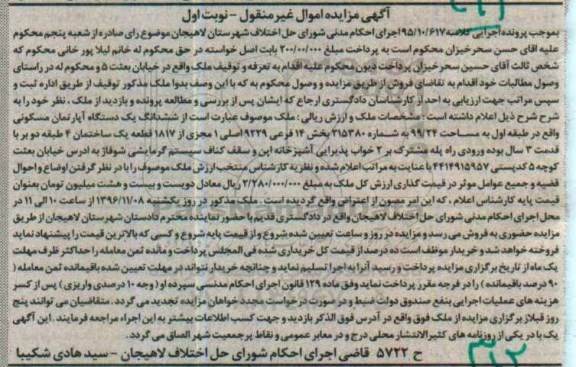 آگهی مزایده اموال غیر منقول - نوبت اول
بموجب پرونده اجرایی کلاسه ۹۵/۱۰/۶۱۷ اجرای احکام مدنی شورای حل اختلاف شهرستان لاهیجان موضوع رای صادره از شعبه پنجم محکوم
علیه آقای حسن سحرخیزان محکوم است به پرداخت مبلغ ۲۰۰/۰۰۰/۰۰۰ بابت اصل خواسته در حق محکوم له خانم لیلا پور خانی محکوم که
شخص ثالث آقای حسین سحرخیزان پرداخت دیون محکوم علیه اقدام به تعرفه و توقیف ملک واقع در خیابان بعثت ۵ و محکوم له در راستای
وصول مطالبات خود اقدام به تقاضای فروش از طریق مزایده و وصول محکوم به که با این وصف بدوا ملک مذکور توقیف از طریق اداره ثبت و
سپس مراتب جهت ارزیابی به احد از کارشناسان دادگستری ارجاع که ایشان پس از بررسی و مطالعه پرونده و بازدید از ملک، نظر خود را به
شرح شرح ذیل اعلام داشته است: مشخصات ملک و ارزش ریالی: ملک موصوف عبارت است از ششدانگ یک دستگاه آپارتمان مسکونی
واقع در طبقه اول به مساحت ۹۹/۲۴ به شماره ۲۱۵۳۸۰ بخش ۱۴ فرعی ۹۲۲۹ اصلی ۱ مجزی از ۱۸۱۷ قطعه یک ساختمان ۴ طبقه دو بر با
قدمت ۳ سال بوده ورودی راه پله مشترک بر ۲ خواب پذیرایی آشپزخانه اپن و سقف کناف سیستم گرمایشی شوفاژ به ادرس خیابان بعثت
کوچه ۵ کدپستی ۴۴۱۴۹۱۵۹۵۷ با عنایت به مراتب اعلام شده و نظریه کارشناس منتخب ارزش ملک موصوف را با در نظر گرفتن اوضاع و احوال
قضیه و جمیع عوامل موثر در قیمت گذاری ارزش کل ملک به مبلغ ۲/۲۸۰/۰۰۰/۰۰۰ ریال معادل دویست و بیست و هشت میلیون تومان بعنوان
قیمت پایه کارشناس اعلام، که این امر مصون از اعتراض واقع گردیده است. ملک مذکور در روز یکشنبه ۱۳۹۶/۱۱/۰۸ از ساعت ۱۰ الی ۱۱ در
محل اجرای احکام مدنی شورای حل اختلاف لاهیجان واقع در دادگستری قدیم با حضور نماینده محترم دادستان شهرستان لاهیجان از طریق
مزایده حضوری به فروش می رسد و مزایده در روز و ساعت تعیین شده شروع و از قیمت پایه شروع و کسی که بالاترین قیمت را پیشنهاد نماید
فروخته خواهد شد و خریدار موظف است ده درصد از قیمت کل خریداری شده فی المجلس پرداخت و مانده ثمن معامله را حداکثر ظرف مهلت
یک ماه از تاریخ برگزاری مزایده پرداخت و رسید آنرا به اجرا تسلیم نماید و چنانچه خریدار نتواند در مهلت تعیین شده باقیمانده ثمن معامله (
۹۰ درصد باقیمانده) را در فرجه مقرر پرداخت نماید وفق ماده ۱۲۹ قانون اجرای احکام مدنسی سپرده او (وجه ۱۰ درصدی واریزی) پس از کسر
هزینه های عملیات اجرایی بنفع صندوق دولت ضبط و در صورت درخواست مجدد خواهان مزایده تجدید می گردد. متقاضیان می توانند پنج
روز قبل از برگزاری مزایده از ملک فوق واقع در آدرس فوق الذکر بازدید و جهت کسب اطلاعات بیشتر به این اجراء مراجعه فرمایند. این آگهی
یک با در یکی از روزنامه های کثیرالانتشار محلی درج و در معابر عمومی و نقاط پرجمعیت شهر الصاق می گردد.
ح ۵۷۲۲ قاضی اجرای احکام شورای حل اختلاف لاهیجان - سید هادی شکیبا
۳۱۲